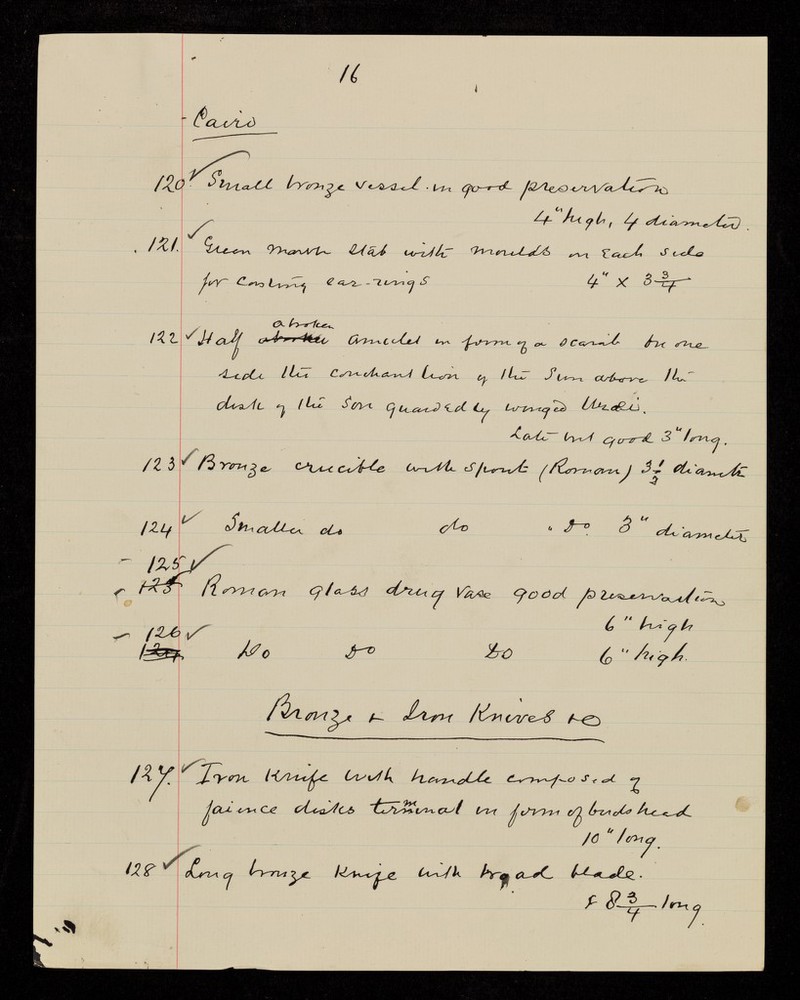 16
Cairo
120. Small bronze vessel in good preservation
4" high, 4 diameter.
121. Green slab with moulds on each side
for casting ear-rings 4" x 3 3/4
a broken
122 Half amulet in form of a scarab on one
side the couchant lion of the Sun above the
disk of the Son guarded by winged Uraei.
Late but good 3" long.
123 Bronze crucible with spout (Roman) 3 1/2 diametr
124 Smaller do do " Do 3" diameter
125
123 Roman glass drug vase good preservation
6" high
126
124 Do Do Do 6" high.
Bronze & Iron Knives &c
127. Iron Knife with handle composed of
faience disks terminal in form of birds head
10" long.
128 Long bronze Knife with broad blade.
8 3/4 long